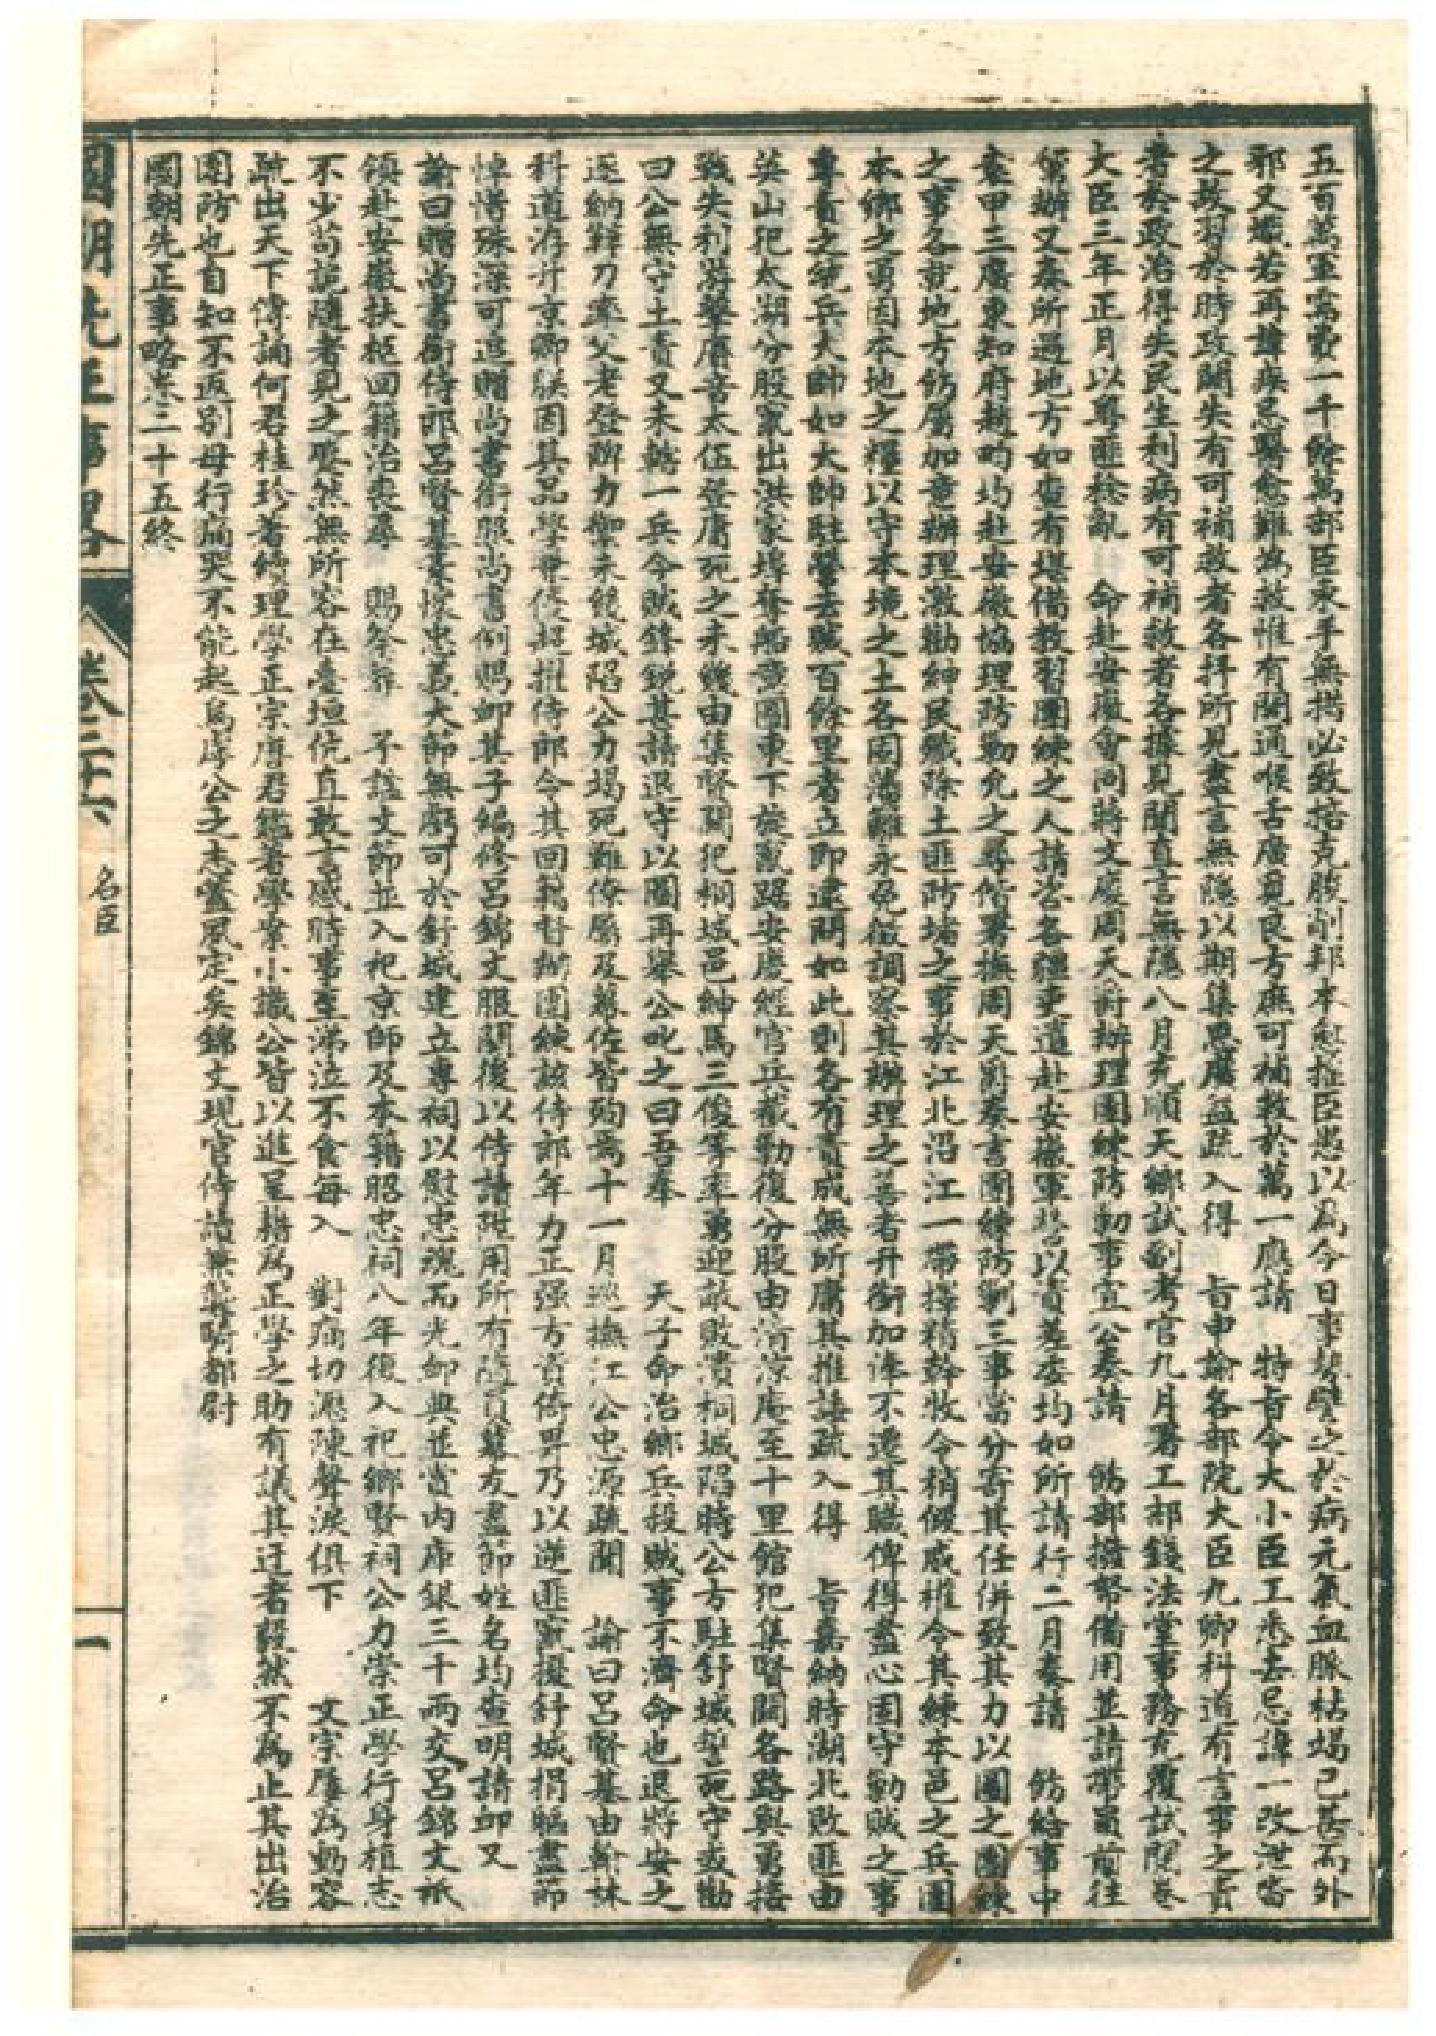 五百萬軍需費一千餘萬部臣束手無措必致掊克朘削邦本愈搖臣愚以為今日事勢譬之於病元氣血脈枯竭已甚而外
邪又熾若再諱疾忌醫愈難為救惟有開通喉舌廣覓良方庶可補救於萬一應請 特旨令大小臣工悉去忌諱一改泄沓
之故習於時政闕失有可補救者各抒所見盡言無隱以期集思廣益疏入得 旨申諭各部院大臣九卿科道有言事之責
者於政治得失民生利病有可補救者各據見聞直言無隱八月充順天鄉試副考官九月署工部錢法堂事務充覆試閱卷
大臣三年正月以粵匪稔亂 命赴安徽會同蔣文慶周天爵辦理團練防勦事宜公奏請 飭部撥帑備用並請帶員前往
幫辦又奏所過地方如查有堪備教習團練之人請咨各疆吏遣赴安徽軍營以資差委均如所請行二月奏請 飭給事中
袁甲三廣東知府趙畇均赴安徽協理防勦允之尋偕署撫周天爵奏言團練防勦三事當分寄其任併致其力以團之團練
之事各就地方飭屬加意辦理激勸紳民殲除土匪防堵之事於江北沿江一帶擇精幹牧令稍假威權令其練本邑之兵團
本鄉之勇因本地之糧以守本境之土各固藩籬永免徵調察其辦理之善者升銜加俸不遷其職俾得盡心固守勦賊之事
專責之統兵大帥如大帥駐營去賊百餘里者立即逮問如此則各有責成無所庸其推諉疏入得 旨嘉納時湖北敗匪由
英山犯太湖分股竄出洪家埠奪船意圖東下旋竄踞安慶經官兵截勦復分股由清涼庵至十里館犯集賢關各路與勇接
戰失利游擊賡音太伍登庸死之未幾由集賢關犯桐城邑紳馬三俊等率勇迎敵敗潰桐城陷時公方駐舒城誓死守或勸
曰公無守土責又未轄一兵今賊鋒銳甚請退守以圖再舉公叱之曰吾奉 天子命治鄉兵殺賊事不濟命也退將安之
遂納靴刀率父老登陴力禦未幾城陷公力竭死難僚屬及幕佐皆殉焉十一月巡撫江公忠源疏聞 諭曰呂賢基由翰林
科道洊升京卿朕因其品學兼優超擢侍郎令其回籍督辦團練該侍郎年力正强方資倚畀乃以逆匪竄擾舒城捐軀盡節
悼惜殊深可追贈尚書銜照尚書例賜卹其子編修呂錦文服闋後以侍講陞用所有隨員幕友盡節姓名均查明請卹又
諭曰贈尚書銜侍郎呂賢基秉懷忠義大節無虧可於舒城建立專祠以慰忠魂而光卹典並賞內庫銀三十兩交呂錦文祇
領赴安徽扶柩回籍治喪尋 賜祭葬 予諡文節並入祀京師及本籍昭忠祠八年後入祀鄉賢祠公力崇正學行身植志
不少苟詭隨者見之懕然無所容在臺垣伉直敢言感時事至涕泣不食每入 對痛切瀝陳聲淚俱下 文宗屢為動容
疏出天下傳誦何君桂珍著續理學正宗唐君鑑著學案小識公皆以進呈指為正學之助有議其迂者毅然不為止其出治
團防也自知不返別母行痛哭不能起烏虖公之志蓋夙定矣錦文現官侍讀兼襲騎都尉
國朝先正事略卷二十五終
國朝先正事畧
卷二十六
名臣
一